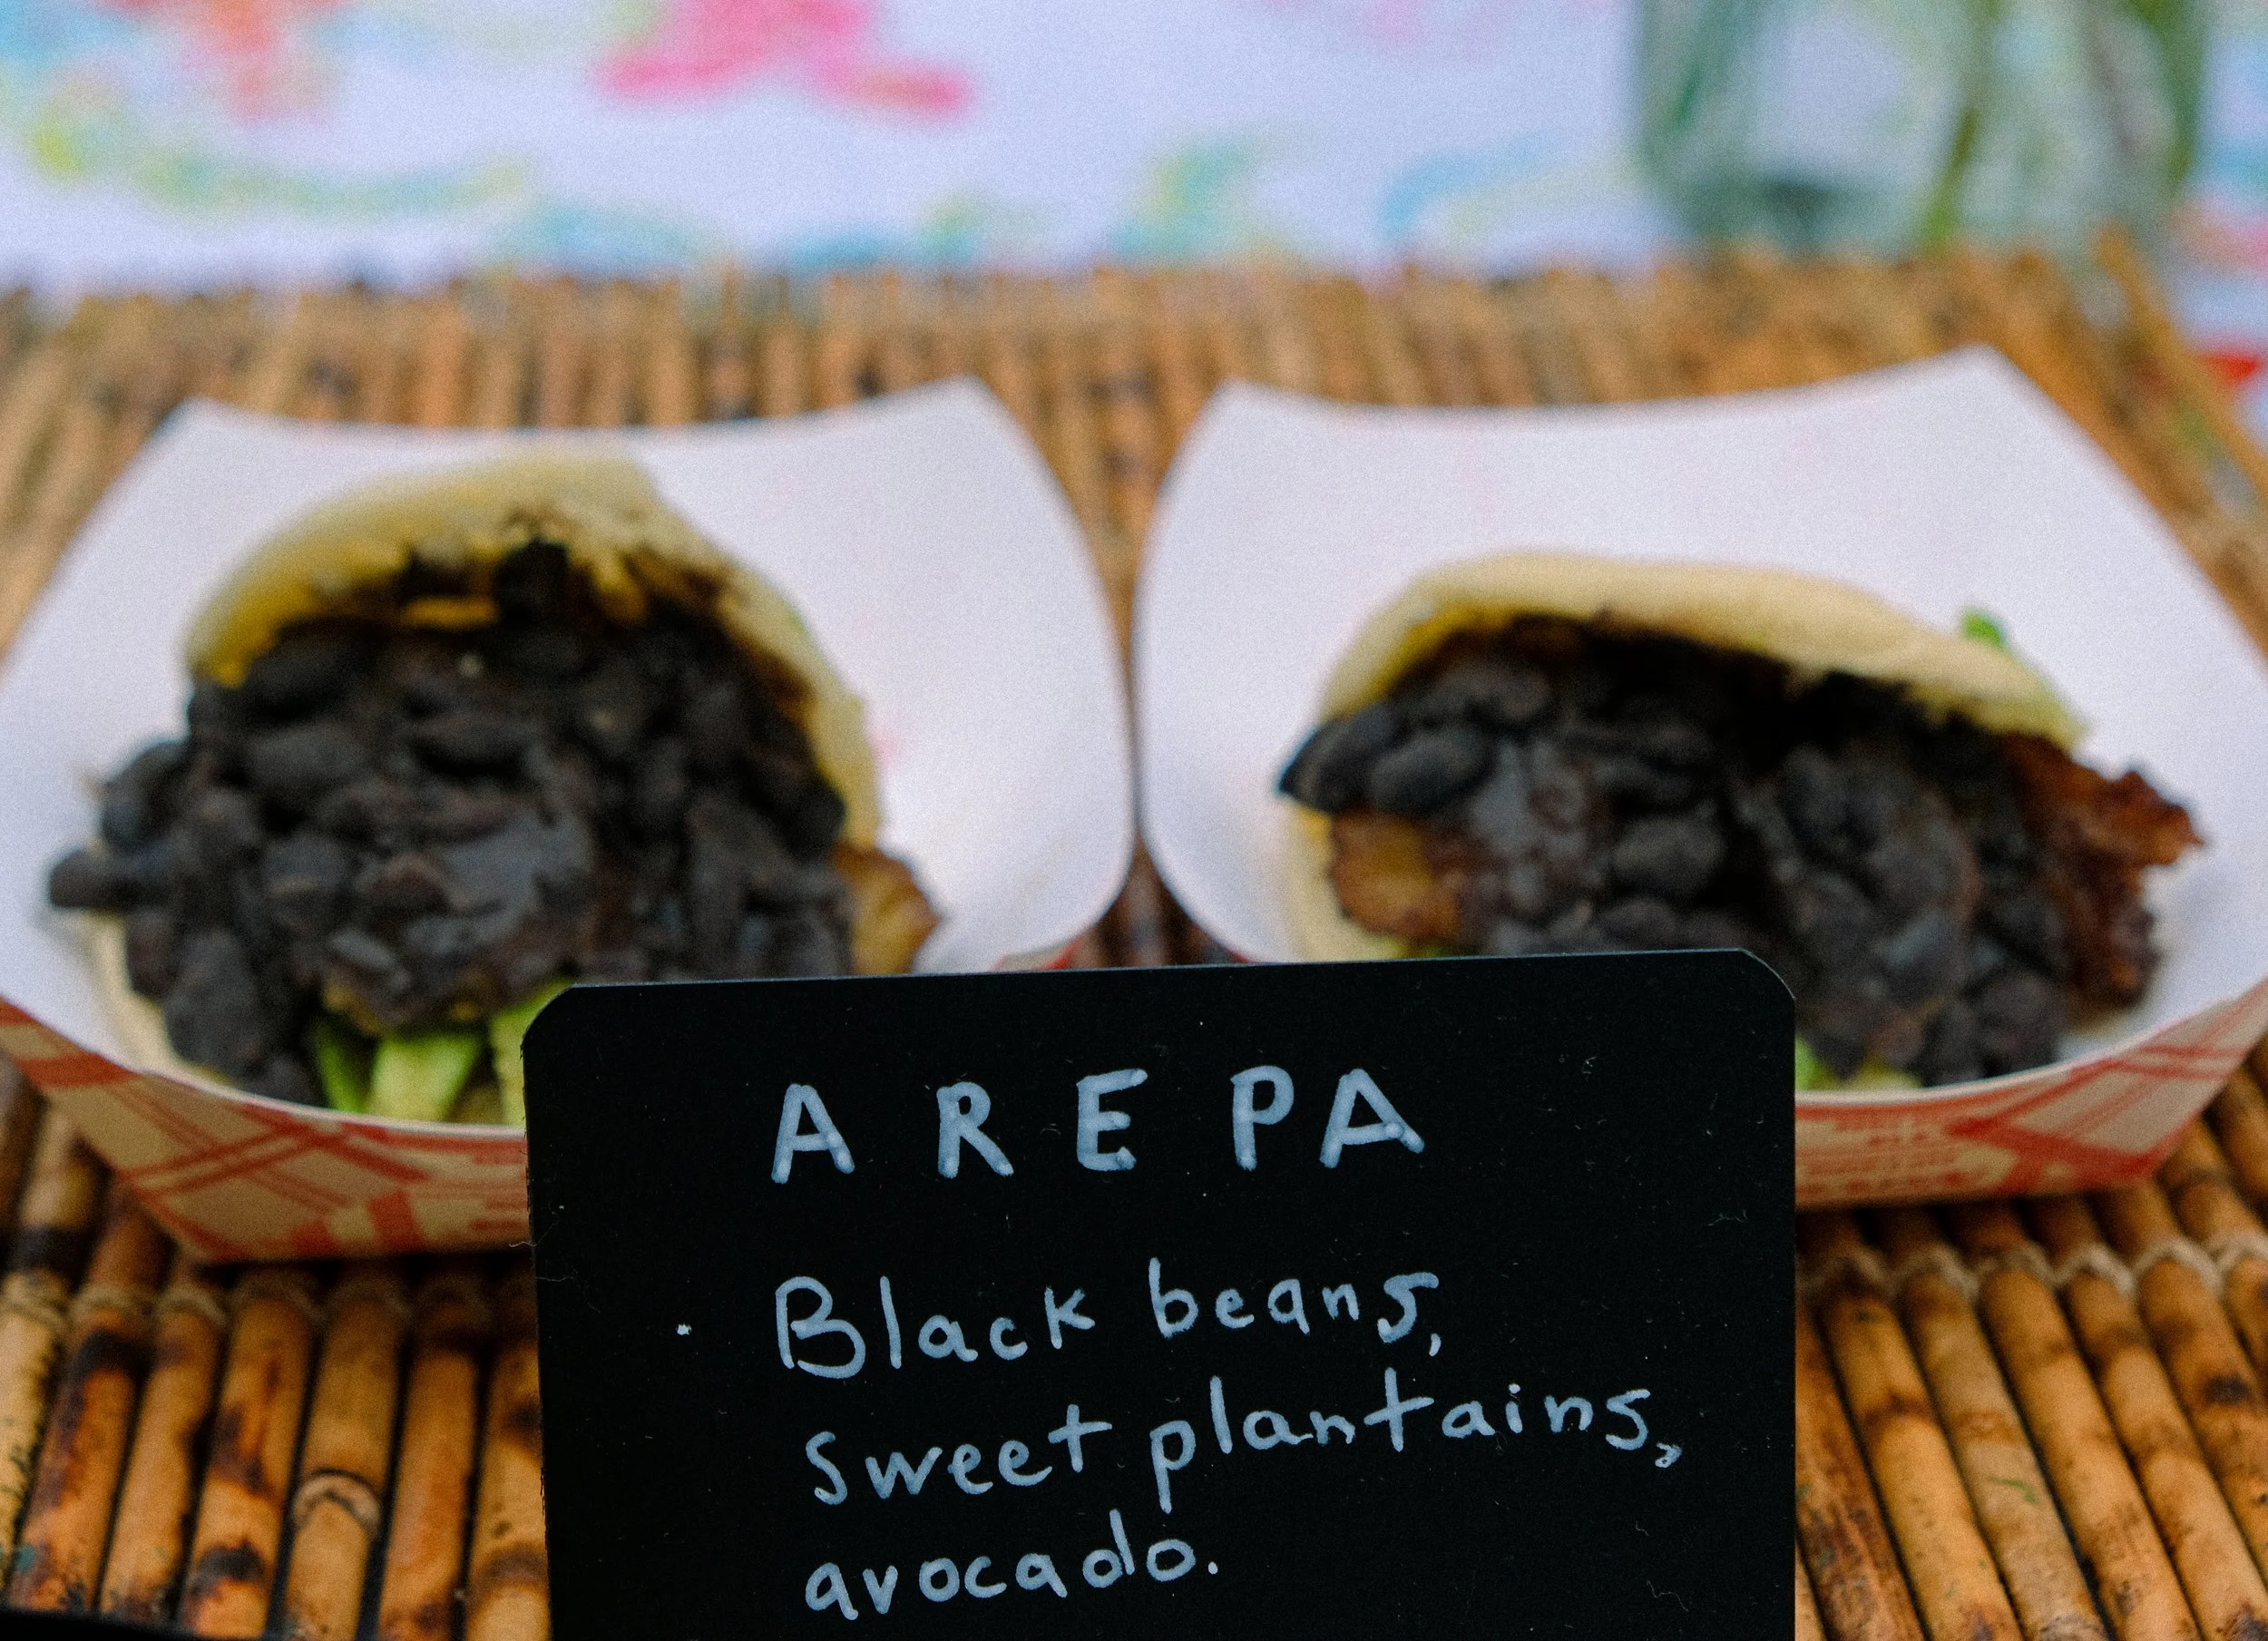 AREPA
Black beans,
sweet plantains,
avocado.